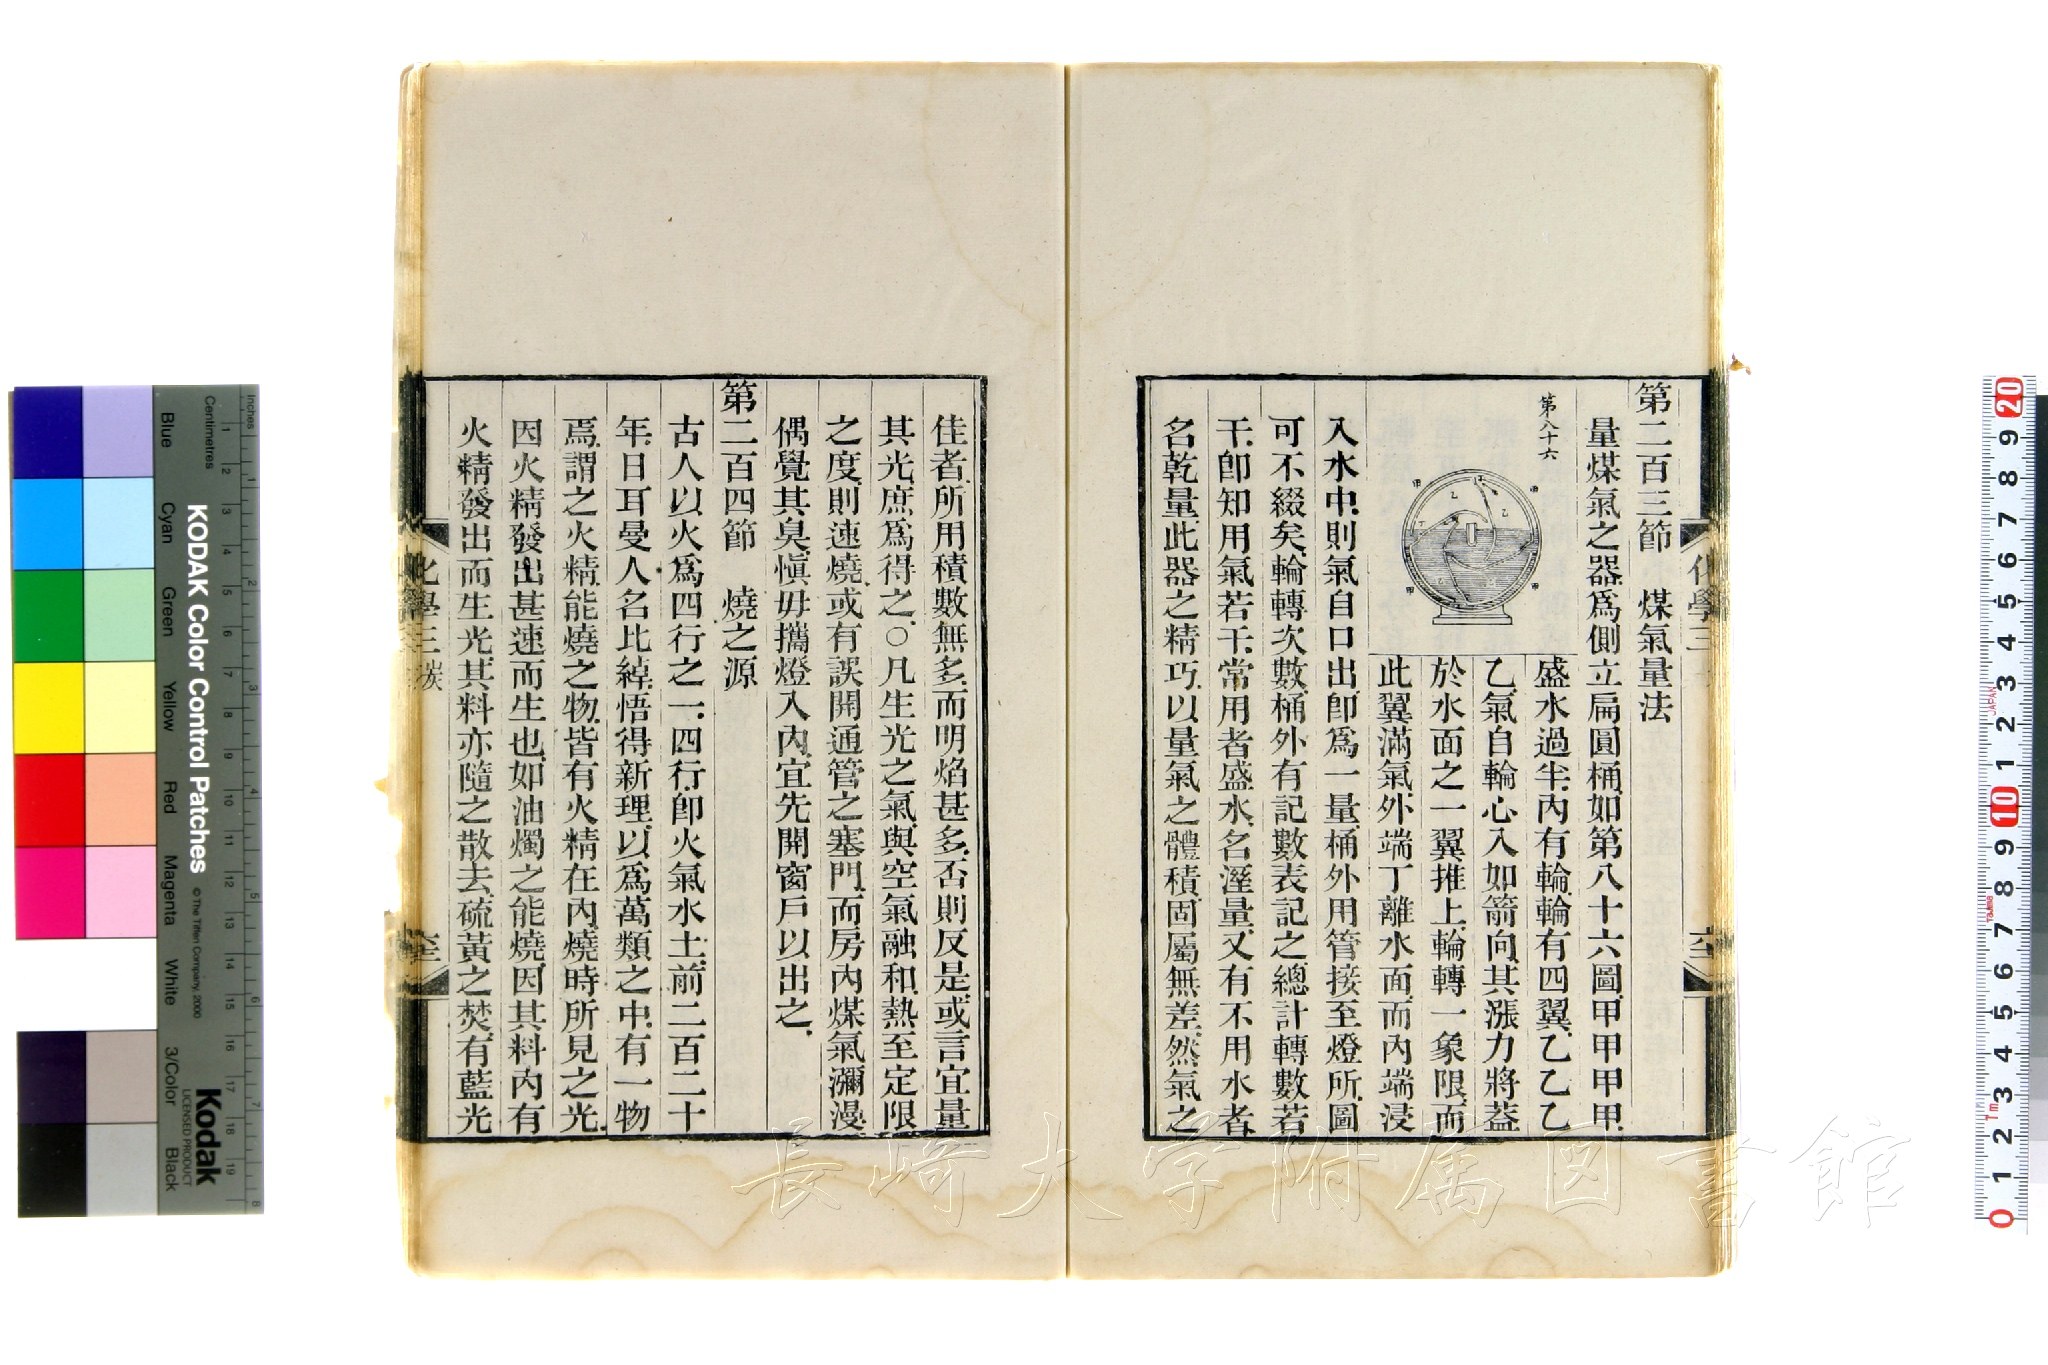 第二百三節　煤氣量法
量煤氣之器爲側立扁圓桶如第八十六圖甲甲甲甲
第八十六
盛水過半內有輪輪有四翼乙乙乙
乙氣自輪心入如箭向其漲力將蓋
於水面之一翼推上輪轉一象限而
此翼滿氣外端丁離水面而內端浸
入水中則氣自口出卽爲一量桶外用管接至燈所圖
可不綴矣輪轉次數桶外有記數表記之總計轉數若
干卽知用氣若干常用者盛水名溼量又有不用水者
名乾量此器之精巧以量氣之體積固屬無差然氣之
化學三
佳者所用積數無多而明焰甚多否則反是或言宜量
其光庶爲得之○凡生光之氣與空氣融和熱至定限
之度則速燒或有誤開通管之塞門而房內煤氣瀰漫
偶覺其臭愼毋攜燈入內宜先開窗戶以出之
第二百四節　燒之源
古人以火爲四行之一四行卽火氣水土前二百二十
年日耳曼人名比綽悟得新理以爲萬類之中有一物
焉謂之火精能燒之物皆有火精在內燒時所見之光
因火精發出甚速而生也如油燭之能燒因其料內有
火精發出而生光其料亦隨之散去硫黃之焚有藍光
化學三 炭
Inches
Centimetres
KODAK Color Control Patches
© The Tiffen Company, 2000
Blue
Cyan
Green
Yellow
Red
Magenta
White
3/Color
Black
Kodak
LICENSED PRODUCT
長崎大学附属図書館
20 9 8 7 6 5 4 3 2 1 10 9 8 7 6 5 4 3 2 1 0
JAPAN